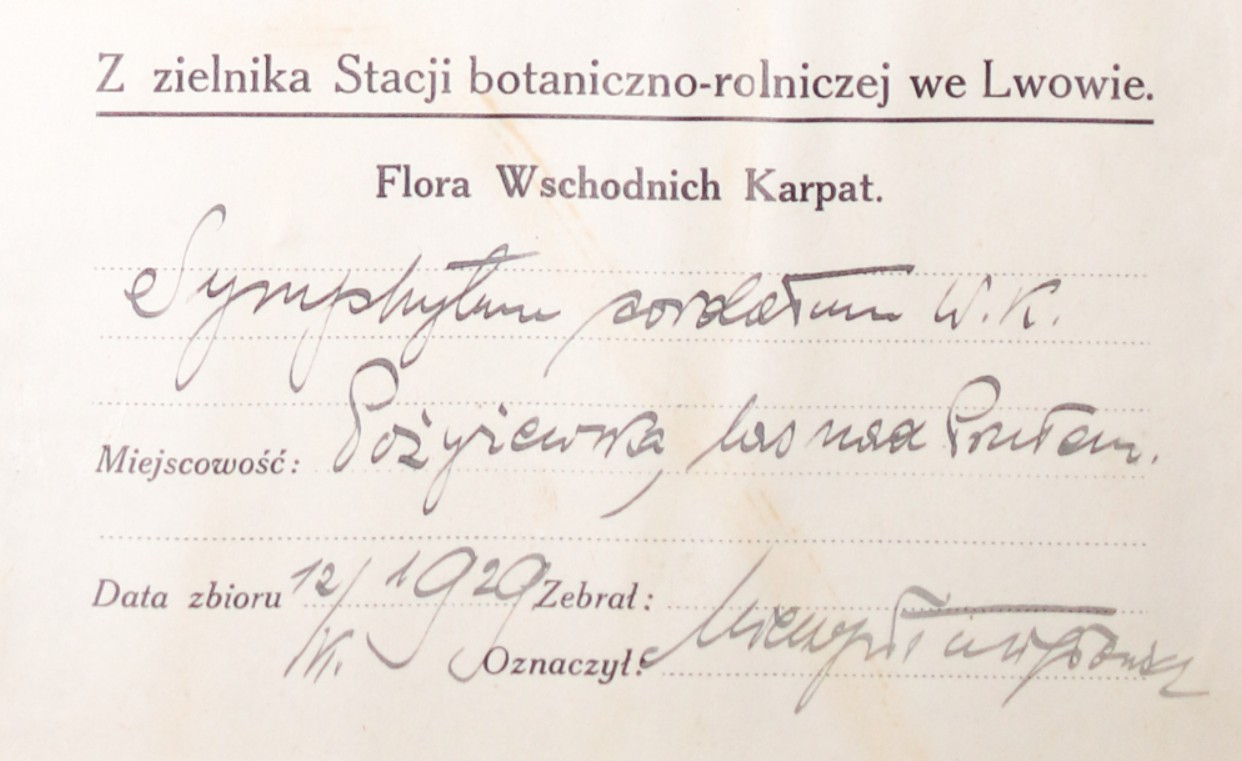 Z zielnika Stacji botaniczno-rolniczej we Lwowie.
Flora Wschodnich Karpat.
Symphytum cordatum W.K.
Miejscowość: Pożyżewska, las nad Prutem.
Data zbioru 12/ 1929 Zebrał:
Oznaczył: